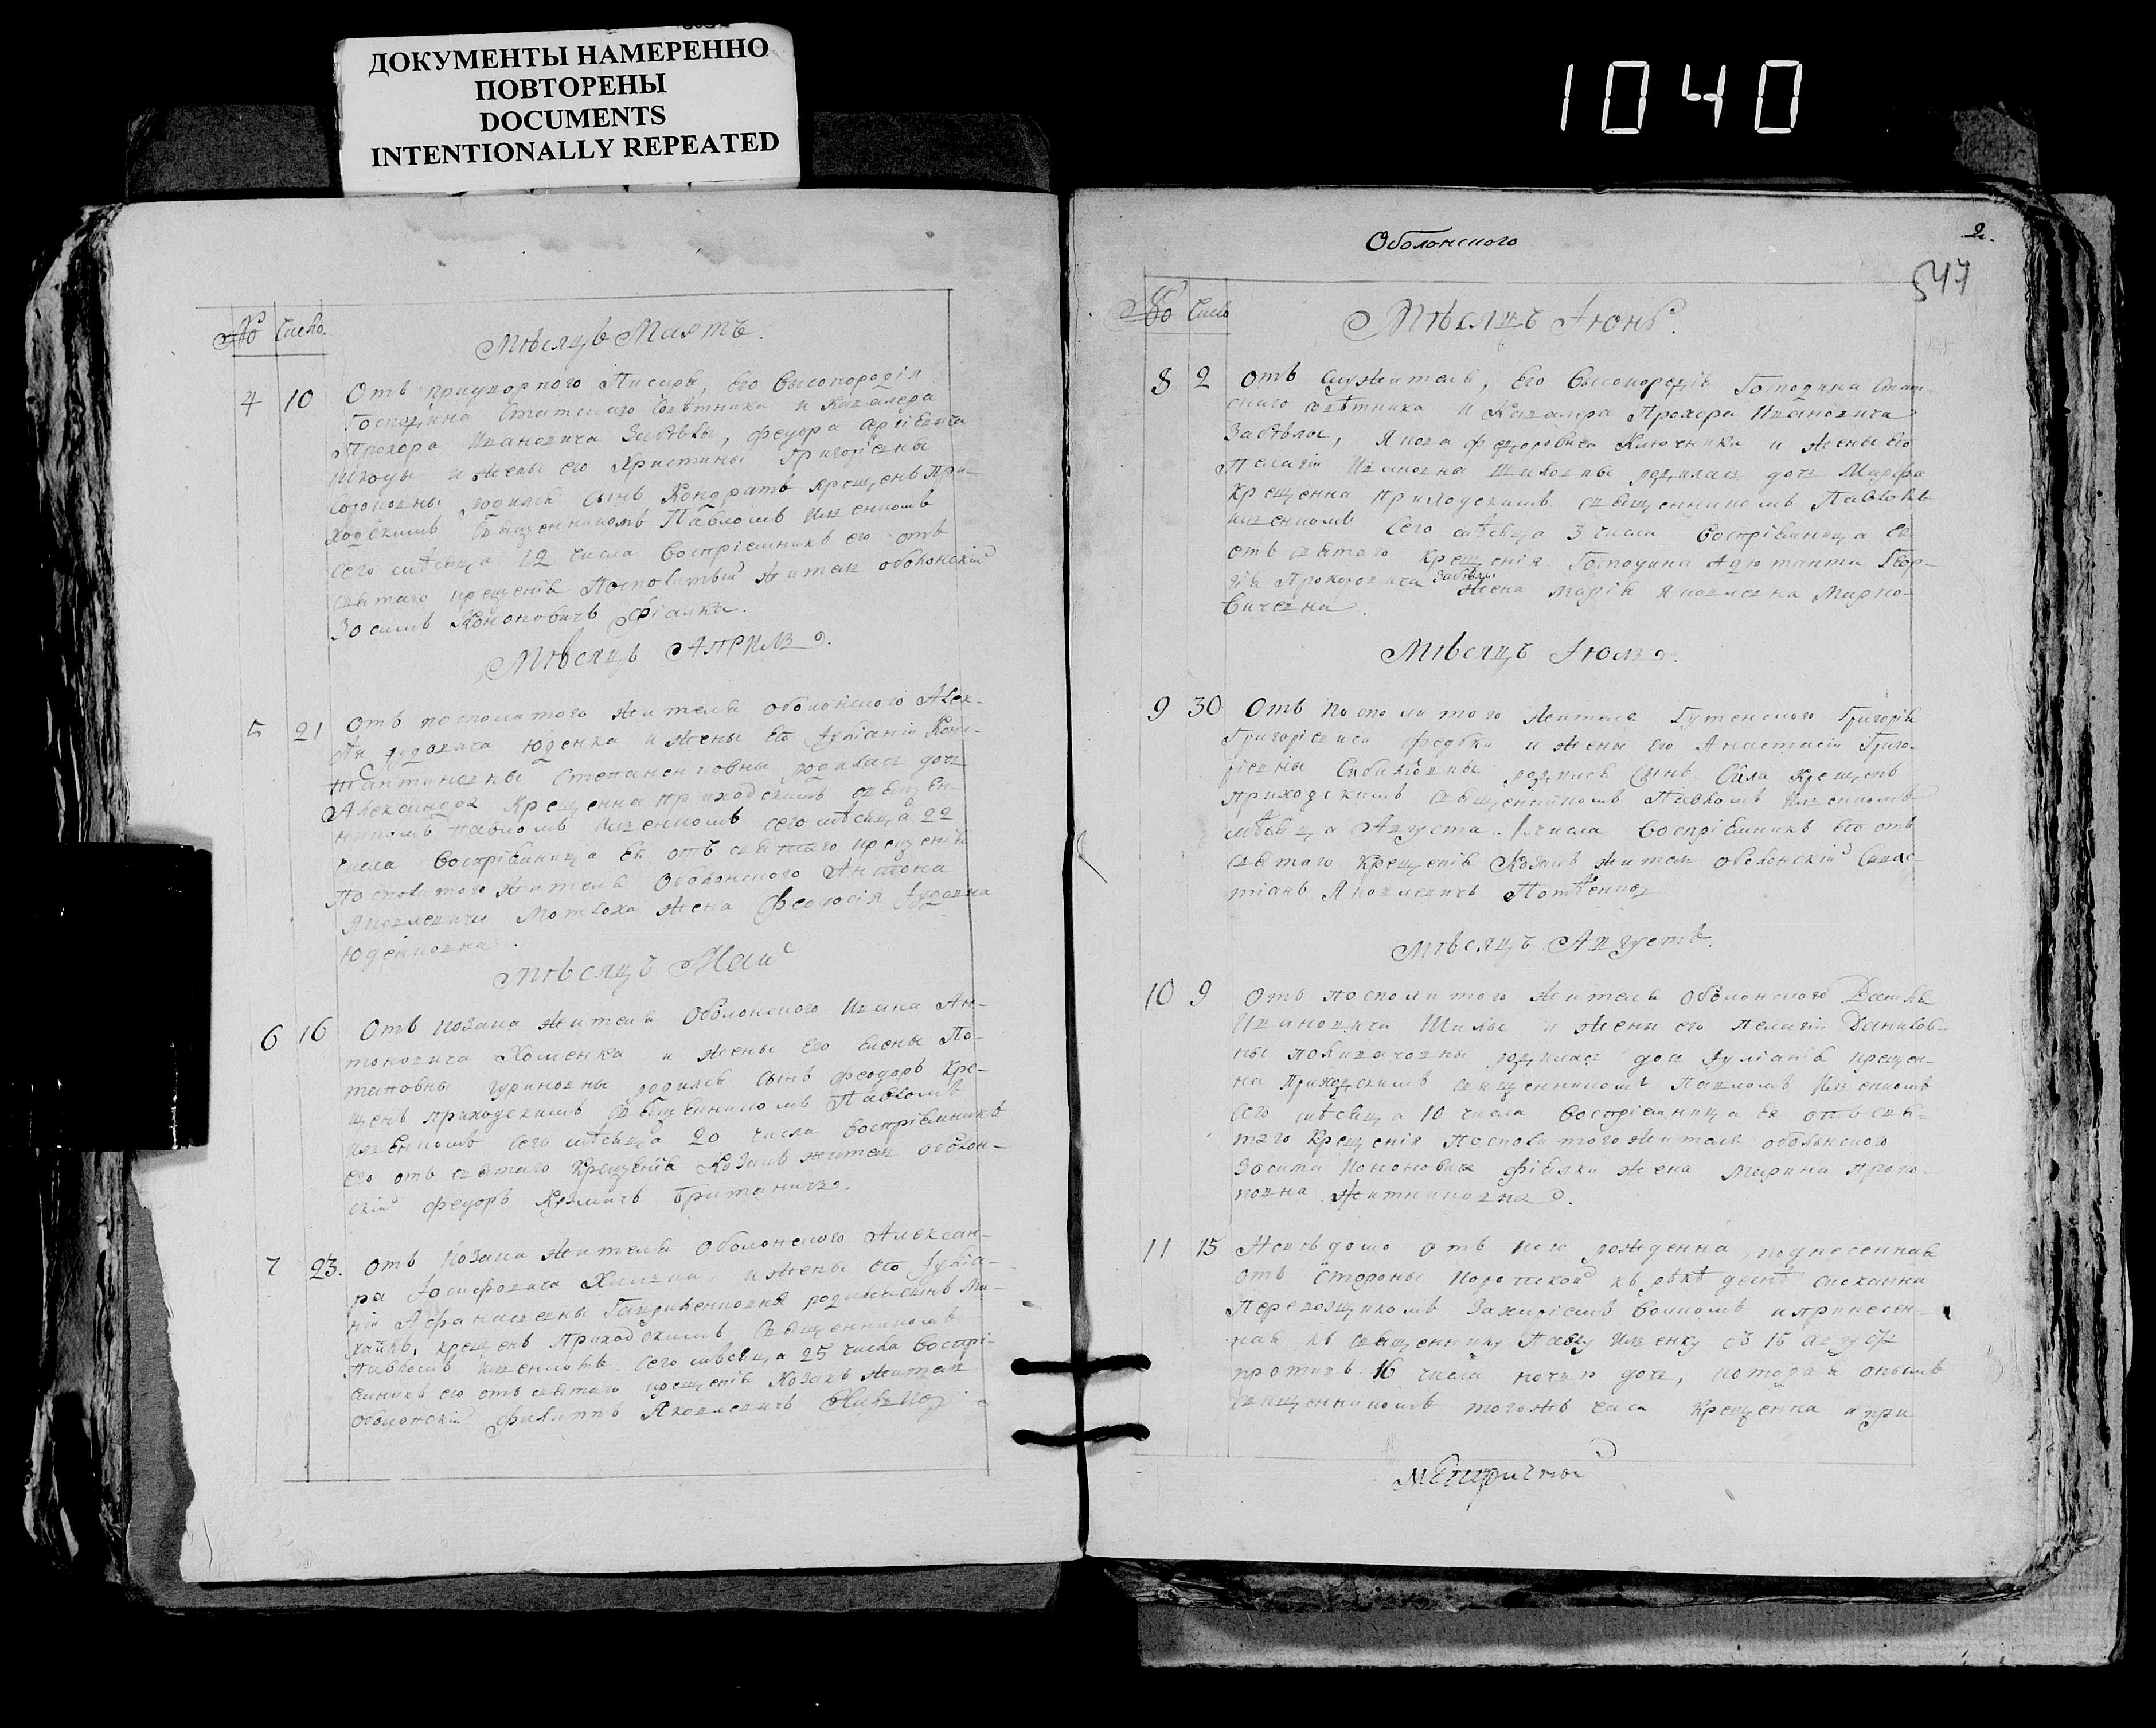 ДОКУМЕНТЫ НАМЕРЕННО
ПОВТОРЕНЫ
DOCUMENTS
INTENTIONALLY REPEATED
1040
№ Число.
Мѣсяцъ Мартъ.
4 10 Отъ придворного Писара, его высокородія
Господина Статского Совѣтника и Кавалера
Прохора Ивановича Забѣлы, Федора
и жены его Христины Григоріевны
родился сынъ Кондратъ крещенъ при-
ходскимъ священникомъ Павломъ Иженкомъ
сего мѣсяца 12 числа воспріемникъ его отъ
святаго крещенія Посполитый житель оболонскій
Зосимъ Кононовичъ Фіалка.
Мѣсяцъ Априль.
5 21 Отъ посполитого жителя оболонского Алек-
Юденка и жены его Іуліаніи Конс-
тантиновны Степаненковны родилась дочь
Александра крещенна приходскимъ священ-
никомъ Павломъ Иженкомъ сего мѣсяца 22
числа воспріемница ея отъ святаго крещенія
Посполитого жителя Оболонского Антона
Яковлевича Мотлоха жена Феодосія Іудовна
Юденковна.
Мѣсяцъ Май
6 16 Отъ козака жителя Оболонского Ивана Ан-
тоновича Хоменка и жены его Елены По-
таповны Гуриновны родился сынъ Феодоръ кре-
щенъ приходскимъ священникомъ Павломъ
Иженкомъ сего мѣсяца 20 числа воспріемникъ
его отъ святаго крещенія козакъ житель оболон-
скій Федоръ Кузмичъ
7 23. Отъ козака жителя Оболонского Алексан-
ра Іосифовича и жены его Іуліа-
ніи Афанасіевны Гавриленковны родился сынъ Ми-
хаилъ, крещенъ приходскимъ священникомъ
Павломъ Иженкомъ сего мѣсяца 25 числа воспрі-
емникъ его отъ святаго крещенія козакъ житель
оболонскій Филиппъ Яковлевичъ
Оболонского
2.
547
№ Число
Мѣсяцъ Іюнь.
8 2 Отъ служителя, его высокородія Господина Стат-
ского совѣтника и Кавалера Прохора Ивановича
Забѣлы, Якова Федоровича Ключника и жены его
Пелагіи Ивановны родилась дочь Марфа
крещенна приходскимъ священникомъ Павломъ
Иженкомъ сего мѣсяца 3 числа воспріемница ея
отъ святаго крещенія Господина Адютанта Геор-
гія Прохоровича Забѣлы жена Марія Яковлевна Марко-
вичевна.
Мѣсяцъ Іюль.
9 30 Отъ посполитого жителя Гутенского Григорія
Григоріевича Федьки и жены его Анастасіи Григо-
ріевны родился сынъ Сила крещенъ
приходскимъ священникомъ Павломъ Иженкомъ
мѣсяца Августа 1 числа воспріемникъ его отъ
святаго крещенія козакъ житель оболонскій Савас-
тіанъ Яковлевичъ
Мѣсяцъ Августъ.
10 9 Отъ посполитого жителя оболонского
Ивановича Шила и жены его Пелагіи Данилов-
ны родилась дочь Іуліанія крещен-
на приходскимъ священникомъ Павломъ Иженкомъ
сего мѣсяца 10 числа воспріемница ея отъ свя-
таго крещенія посполитого жителя оболонского
Зосима Кононовича Фіялки жена Марина Проко-
повна Житниковна.
11 15 Невѣдомо отъ кого рожденна, поднесенная
отъ стороны Коропской къ рѣкѣ деснѣ сисканна
Перевощикомъ Захаріемъ и принесен-
ная къ священнику Павлу Иженку съ 15 августа
противъ 16 числа ночью дочь, которая онымъ
священникомъ тогожъ часа крещенна и при